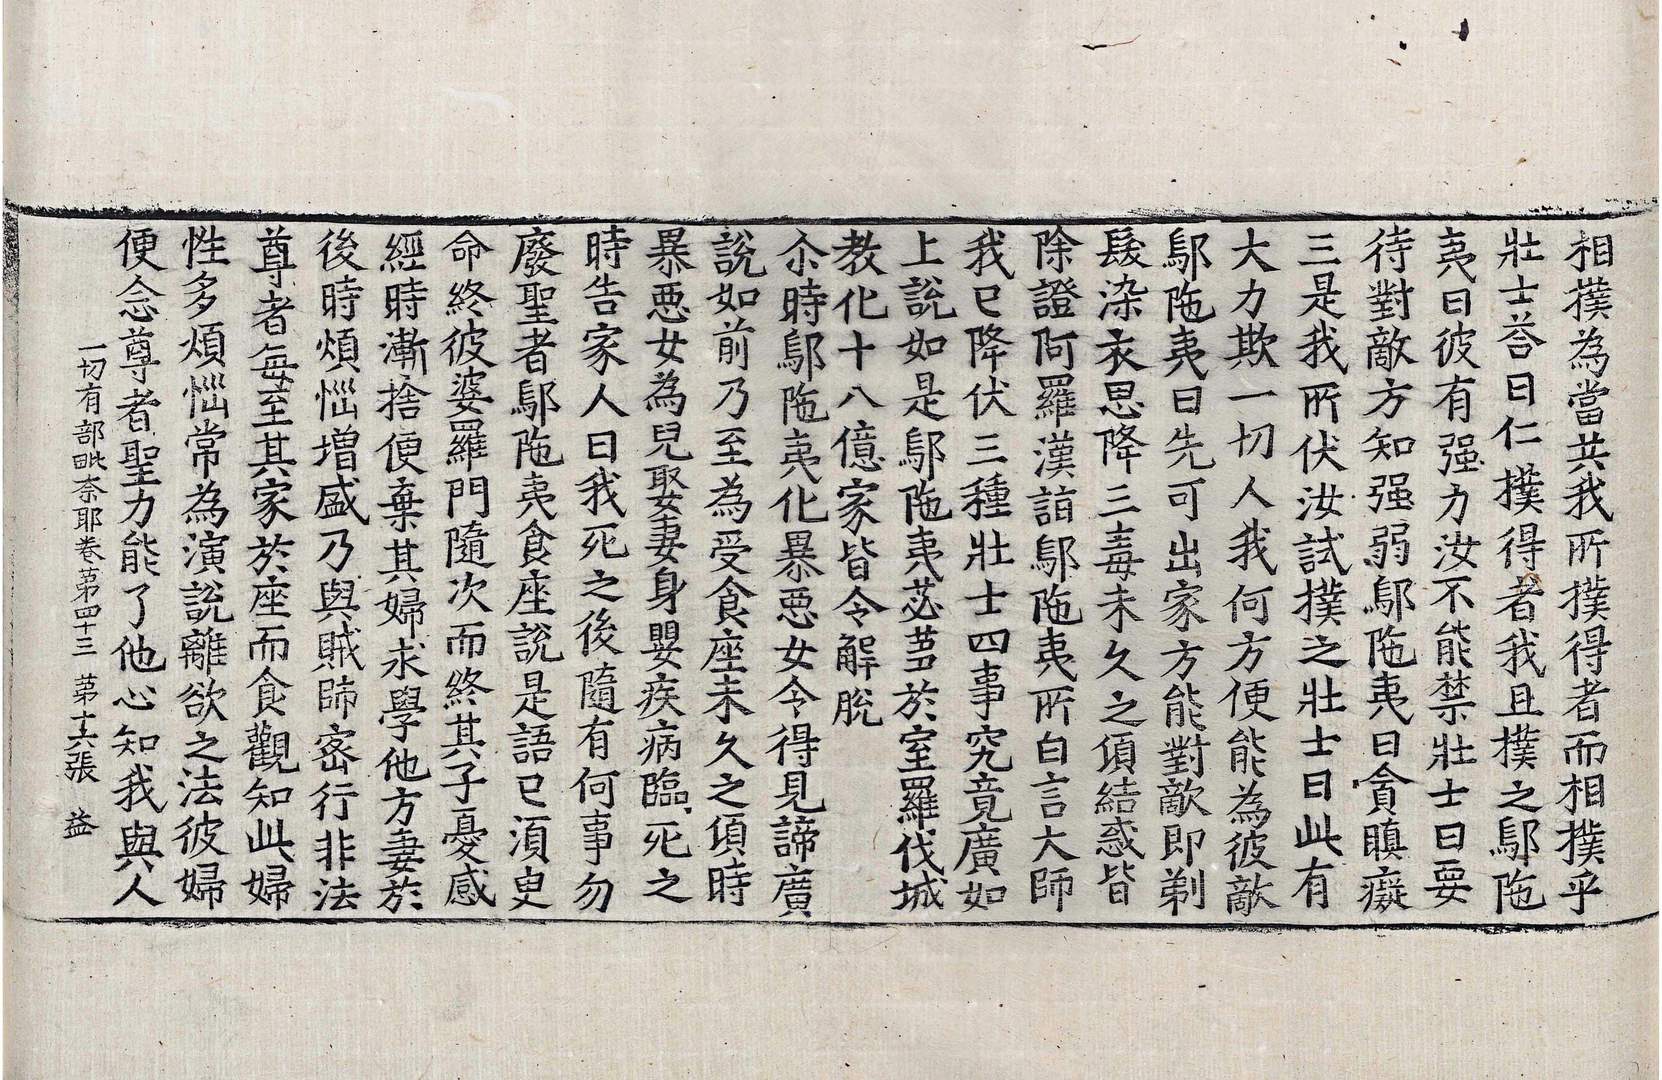 相撲為當共我所撲得者而相撲乎
壯士荅曰仁撲得者我且撲之鄔陁
夷曰彼有强力汝不能禁壯士曰要
待對敵方知强弱鄔陁夷曰貪瞋癡
三是我所伏汝試撲之壯士曰此有
大力欺一切人我何方便能為彼敵
鄔陁夷曰先可出家方能對敵即剃
髮染衣思降三毒未久之頃結惑皆
除證阿羅漢詣鄔陁夷所白言大師
我已降伏三種壯士四事究竟廣如
上說如是鄔陁夷苾蒭於室羅伐城
教化十八億家皆令解脫
尒時鄔陁夷化暴惡女令得見諦廣
說如前乃至為受食座未久之頃時
暴惡女為兒娶妻身嬰疾病臨死之
時告家人曰我死之後隨有何事勿
廢聖者鄔陁夷食座說是語已須臾
命終彼婆羅門隨次而終其子憂慼
經時漸捨便棄其婦求學他方妻於
後時煩惱增盛乃與賊師密行非法
尊者每至其家於座而食觀知此婦
性多煩惱常為演說離欲之法彼婦
便念尊者聖力能了他心知我與人
一切有部毗奈耶卷苐四十三　苐十六張　益